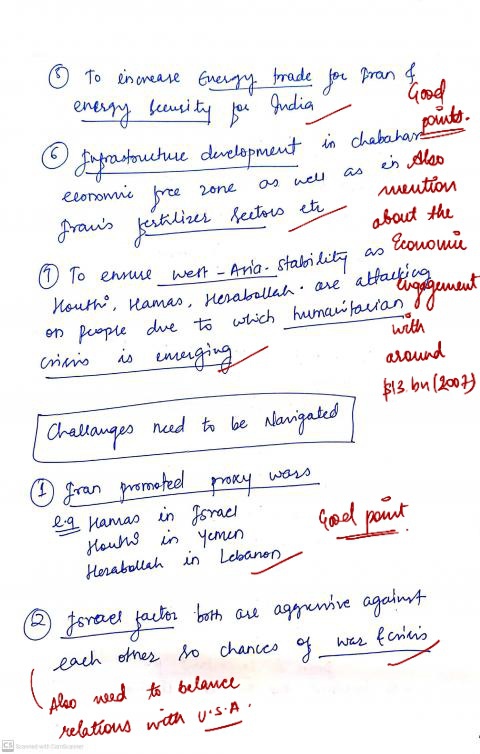 ⑤ To increase Energy trade for Iran &
energy security for India
Good
points.
⑥ Infrastructure development in chabahar
economic free zone as well as in
Iran's fertilizer sectors etc
Also
mention
about the
Economic
Engagement
with
around
$13 bn (2007)
⑦ To ensure west-Asia stability as
Houthi, Hamas, Hesabollah. are attacking
on people due to which humanitarian
crisis is emerging
Challanges need to be Navigated
① Iran promoted proxy wars
e.g Hamas in Israel
Houthi in Yemen
Hesabollah in Lebanon
Good point
② Israel factor both are aggressive against
each other so chances of war & crisis
Also need to balance
relations with U.S.A.
CS Scanned with CamScanner